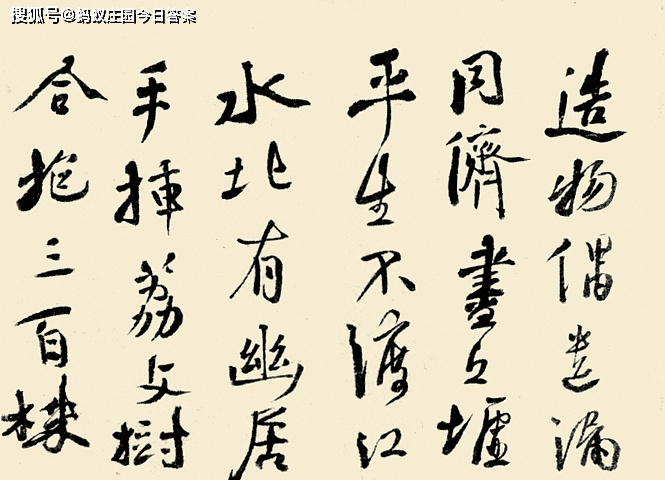 搜狐号@蚂蚁庄园今日答案
造物偶遺漏
同儕盡丘墟
平生不渡江
水北有幽居
手插荔支樹
合抱三百株